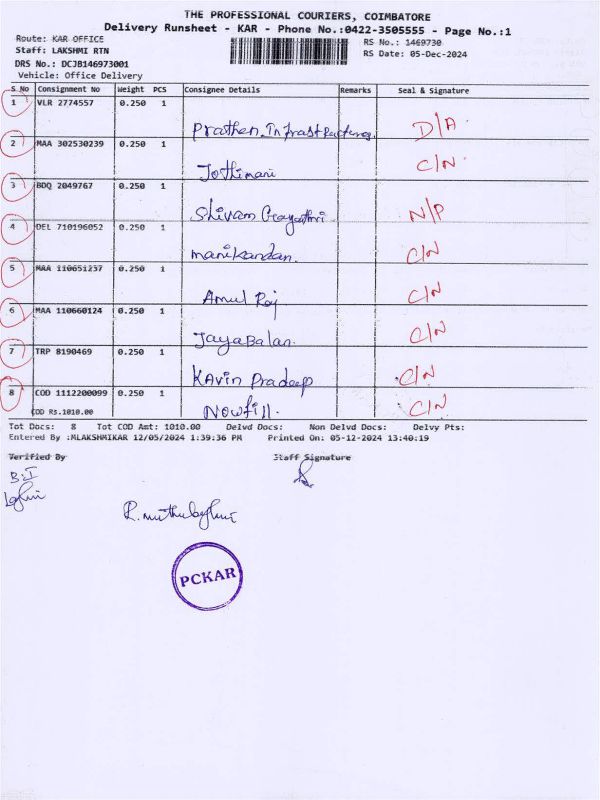 THE PROFESSIONAL COURIERS, COIMBATORE
Delivery Runsheet - KAR - Phone No.:0422-3505555 - Page No.:1
Route: KAR OFFICE RS No.: 1469730
Staff: LAKSHMI RTN RS Date: 05-Dec-2024
DRS No.: DCJB146973001
Vehicle: Office Delivery
S No Consignment No Weight PCS Consignee Details Remarks Seal & Signature
1 VLR 2774557 0.250 1
Prathen Infrastructures D/A
2 MAA 302530239 0.250 1
Jothimani C/N
3 BDQ 2049767 0.250 1
Shivam Gayathri N/P
4 DEL 710196052 0.250 1
manikandan. C/N
5 MAA 110651237 0.250 1
Amul Raj C/N
6 MAA 110660124 0.250 1
JayaBalan. C/N
7 TRP 8190469 0.250 1
KAvin Pradeep C/N
8 COD 1112200099 0.250 1
COD Rs.1010.00 Nowfill. C/N
Tot Docs: 8 Tot COD Amt: 1010.00 Delvd Docs: Non Delvd Docs: Delvy Pts:
Entered By :MLAKSHMIKAR 12/05/2024 1:39:36 PM Printed On: 05-12-2024 13:40:19
Verified By Staff Signature
PCKAR